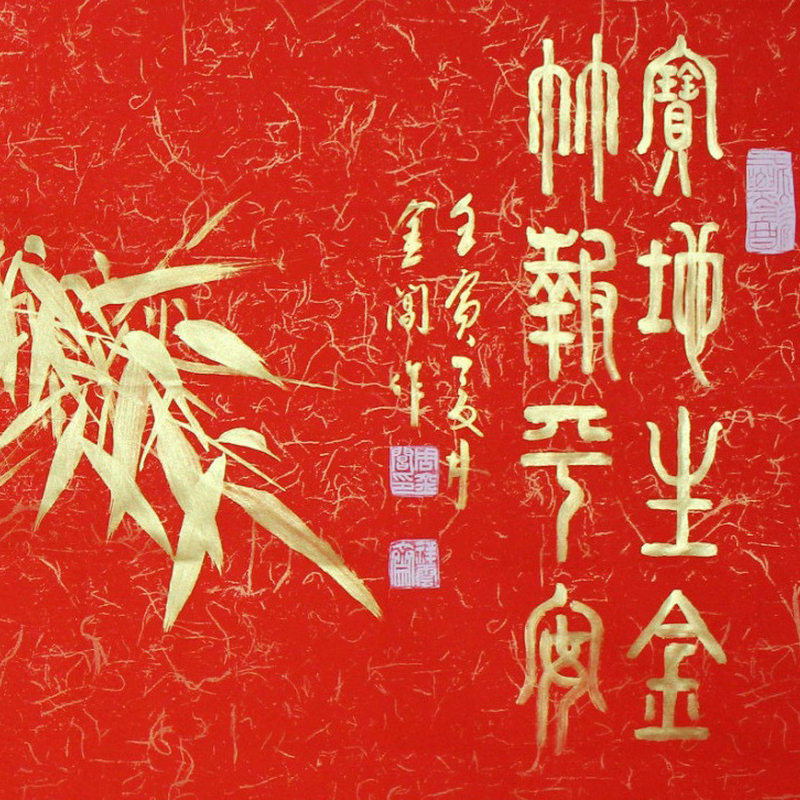 寶地生金
竹報平安
壬寅夏月
金 作